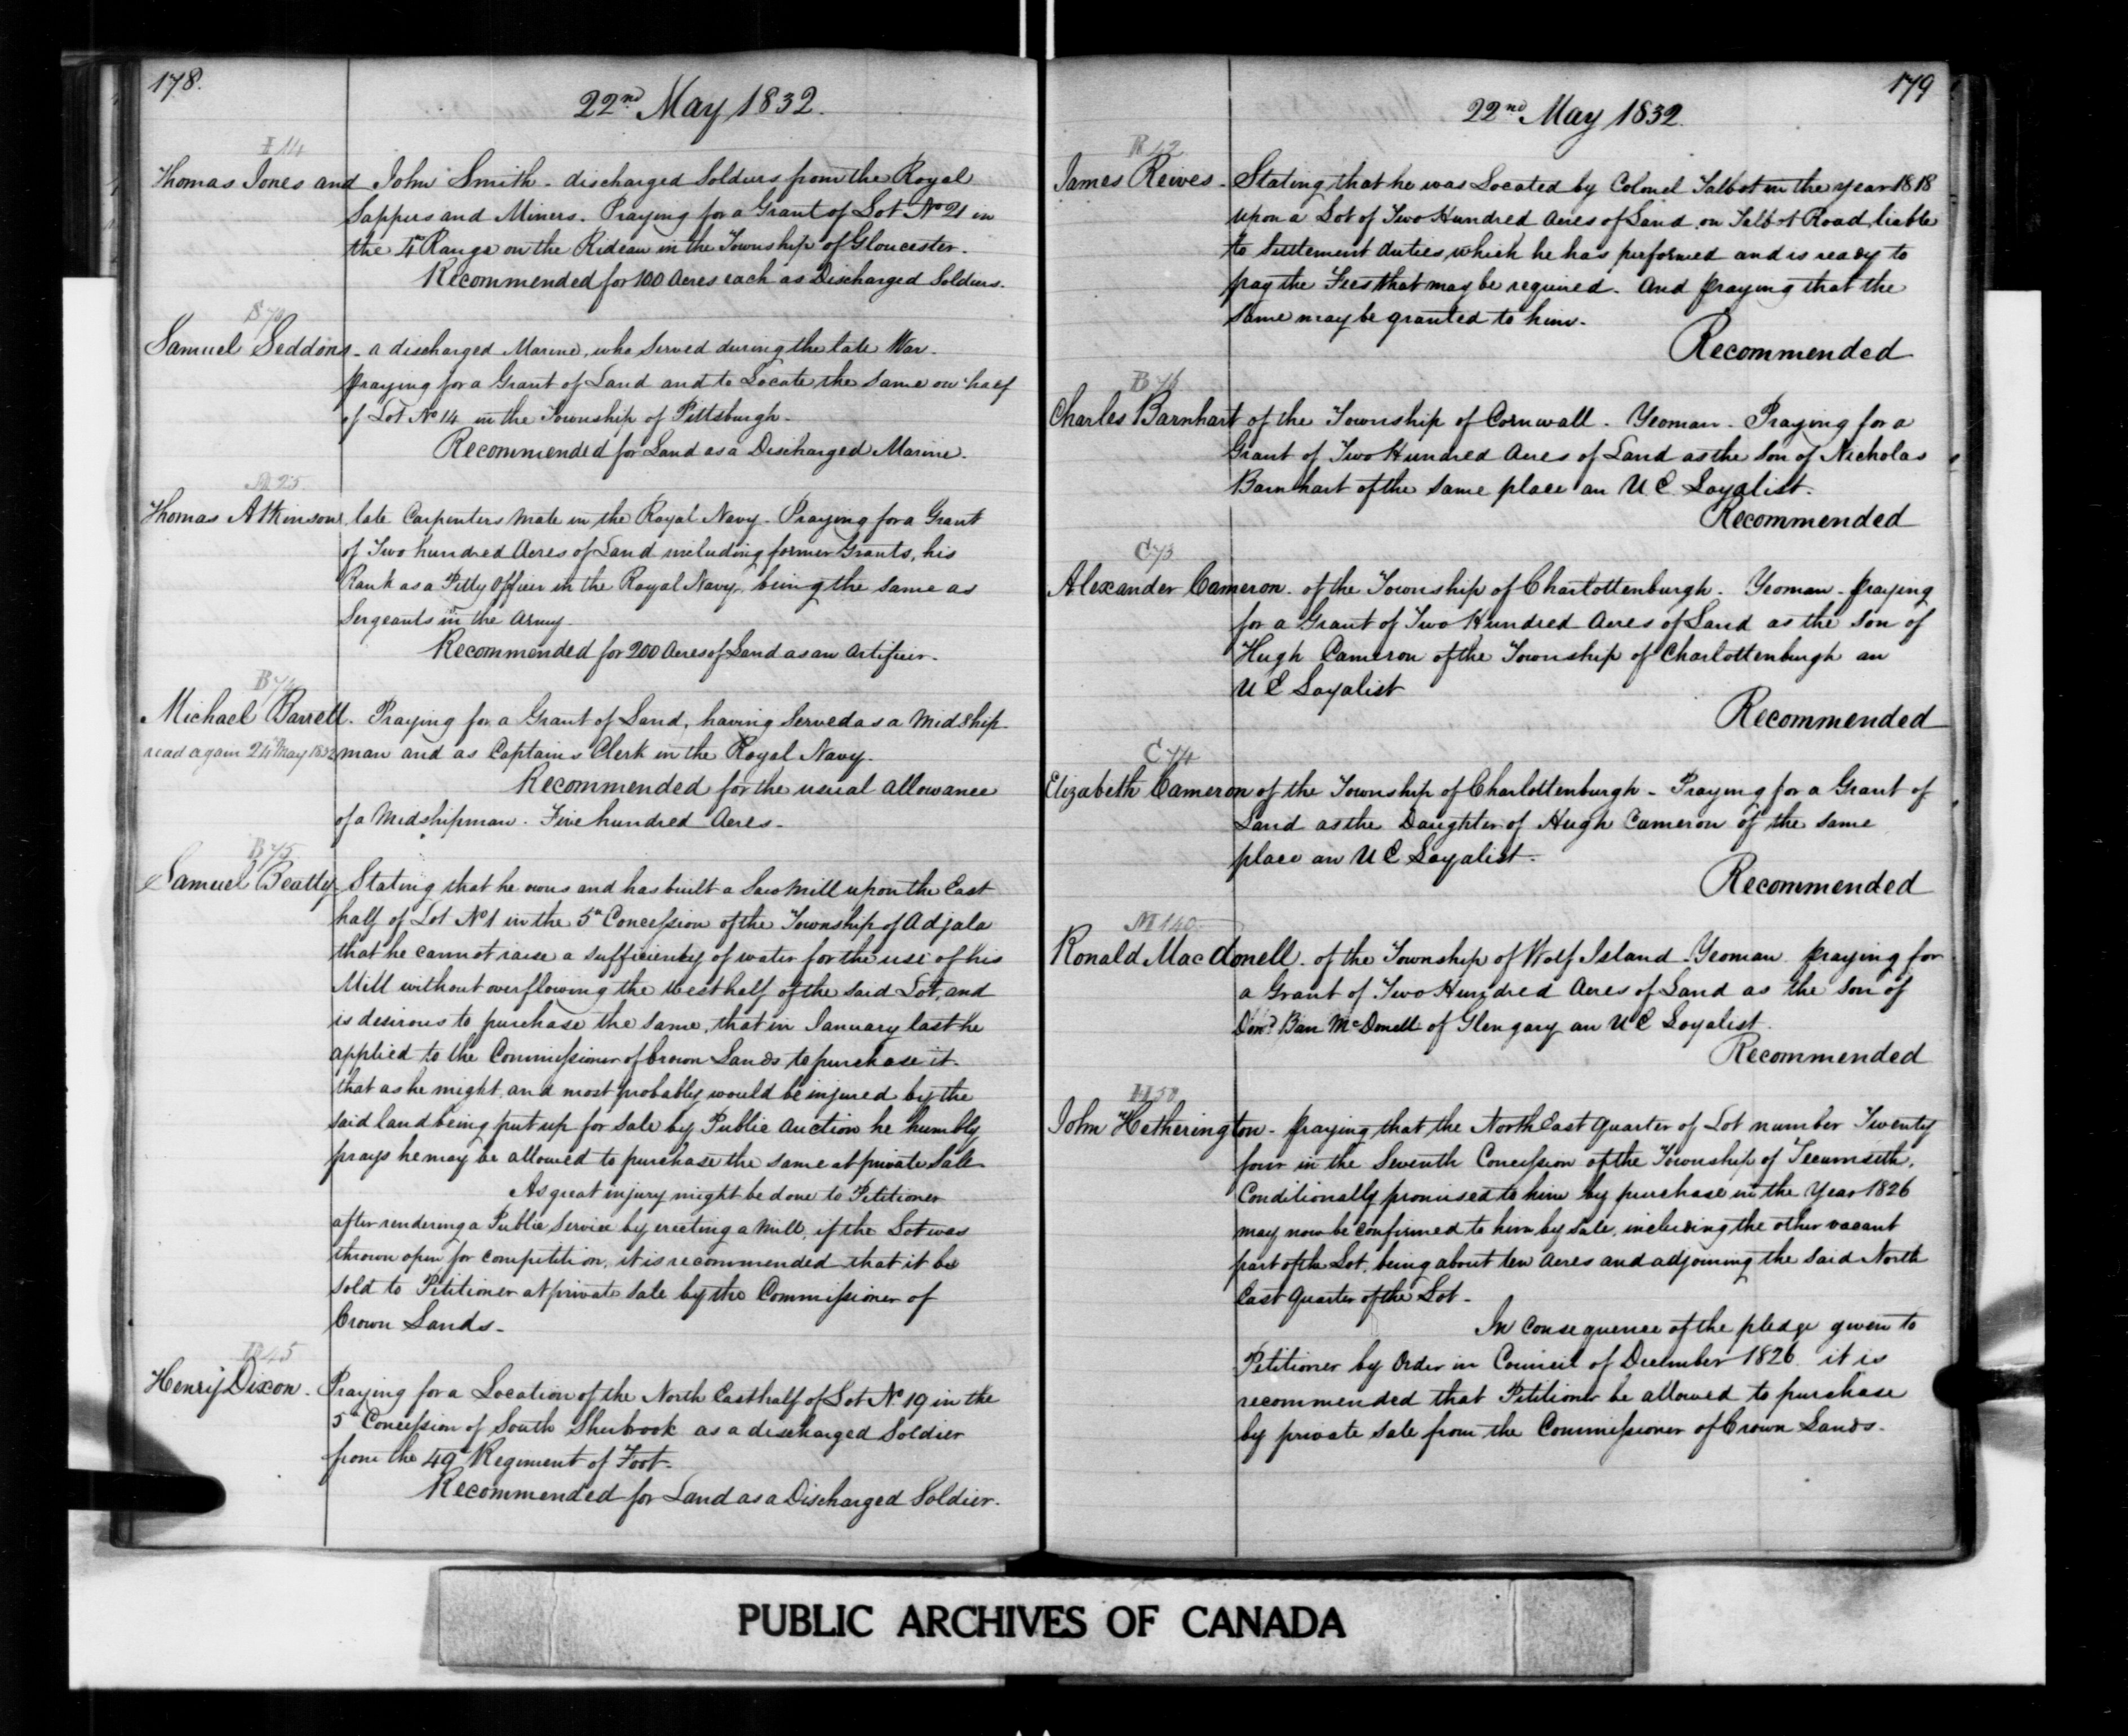 178.
22nd May 1832.
I 14
Thomas Jones and John Smith - discharged Soldiers from the Royal
Sappers and Miners. Praying for a Grant of Lot No 21 in
the 4th Range on the Rideau in the Township of Gloucester.
Recommended for 100 Acres each as Discharged Soldiers.
Samuel Seddons - a discharged Marine, who Served during the late War.
praying for a Grant of Land and to Locate the same on half
of Lot No 14 in the Township of Pittsburgh.
Recommended for Land as a Discharged Marine.
A 25
Thomas Atkinson, late Carpenters Mate in the Royal Navy - Praying for a Grant
of Two hundred Acres of Land including former Grants, his
Rank as a Petty Officer in the Royal Navy, being the same as
Sergeants in the Army.
Recommended for 200 Acres of Land as an Artificer.
B 74
Michael Barrett. Praying for a Grant of Land, having Served as a Midship
read again 24th May 1832 man and as Captains Clerk in the Royal Navy.
Recommended for the usual allowance
of a Midshipman. Five hundred Acres.
B 75
Samuel Beatty Stating that he owns and has built a Saw Mill upon the East
half of Lot No 1 in the 5th Concession of the Township of Adjala
that he cannot raise a sufficiency of water for the use of his
Mill without overflowing the West half of the said Lot, and
is desirous to purchase the same, that in January last he
applied to the Commissioner of Crown Lands to purchase it.
that as he might, and most probably would be injured by the
said land being put up for sale by Public Auction he humbly
prays he may be allowed to purchase the same at private Sale
As great injury might be done to Petitioner
after rendering a Public Service by erecting a Mill, if the Lot was
thrown open for competition, it is recommended that it be
sold to Petitioner at private sale by the Commissioner of
Crown Lands.
D 45
Henry Dixon. Praying for a Location of the North East half of Lot No 19 in the
5th Concession of South Sherbrook as a discharged Soldier
from the 49th Regiment of Foot.
Recommended for Land as a Discharged Soldier.
179
22nd May 1832.
R 42
James Reives - Stating that he was Located by Colonel Talbot in the year 1818
upon a Lot of Two Hundred Acres of Land on Talbot Road, liable
to Settlement duties, which he has performed and is ready to
pay the Fees that may be required. And praying that the
same may be granted to him.
Recommended
B 76
Charles Barnhart of the Township of Cornwall. Yeoman. Praying for a
Grant of Two Hundred Acres of Land as the Son of Nicholas
Barnhart of the same place an U E Loyalist.
Recommended
C 73
Alexander Cameron. of the Township of Charlottenburgh. Yeoman. praying
for a Grant of Two Hundred Acres of Land as the Son of
Hugh Cameron of the Township of Charlottenburgh an
U E Loyalist
Recommended
C 74
Elizabeth Cameron of the Township of Charlottenburgh - Praying for a Grant of
Land as the Daughter of Hugh Cameron of the same
place an U E Loyalist.
Recommended
M 140
Ronald Macdonell. of the Township of Wolf Island. Yeoman. praying for
a Grant of Two Hundred Acres of Land as the Son of
Dond Ban McDonell of Glengary an U E Loyalist.
Recommended
H 58
John Hetherington - praying that the North East quarter of Lot number Twenty
four in the Seventh Concession of the Township of Tecumseth,
Conditionally promised to him by purchase in the Year 1826
may now be confirmed to him by Sale, including the other vacant
part of the Lot, being about ten acres and adjoining the said North
East quarter of the Lot -
In consequence of the pledge given to
Petitioner by Order in Council of December 1826 it is
recommended that Petitioner be allowed to purchase
by private Sale from the Commissioner of Crown Lands.
PUBLIC ARCHIVES OF CANADA